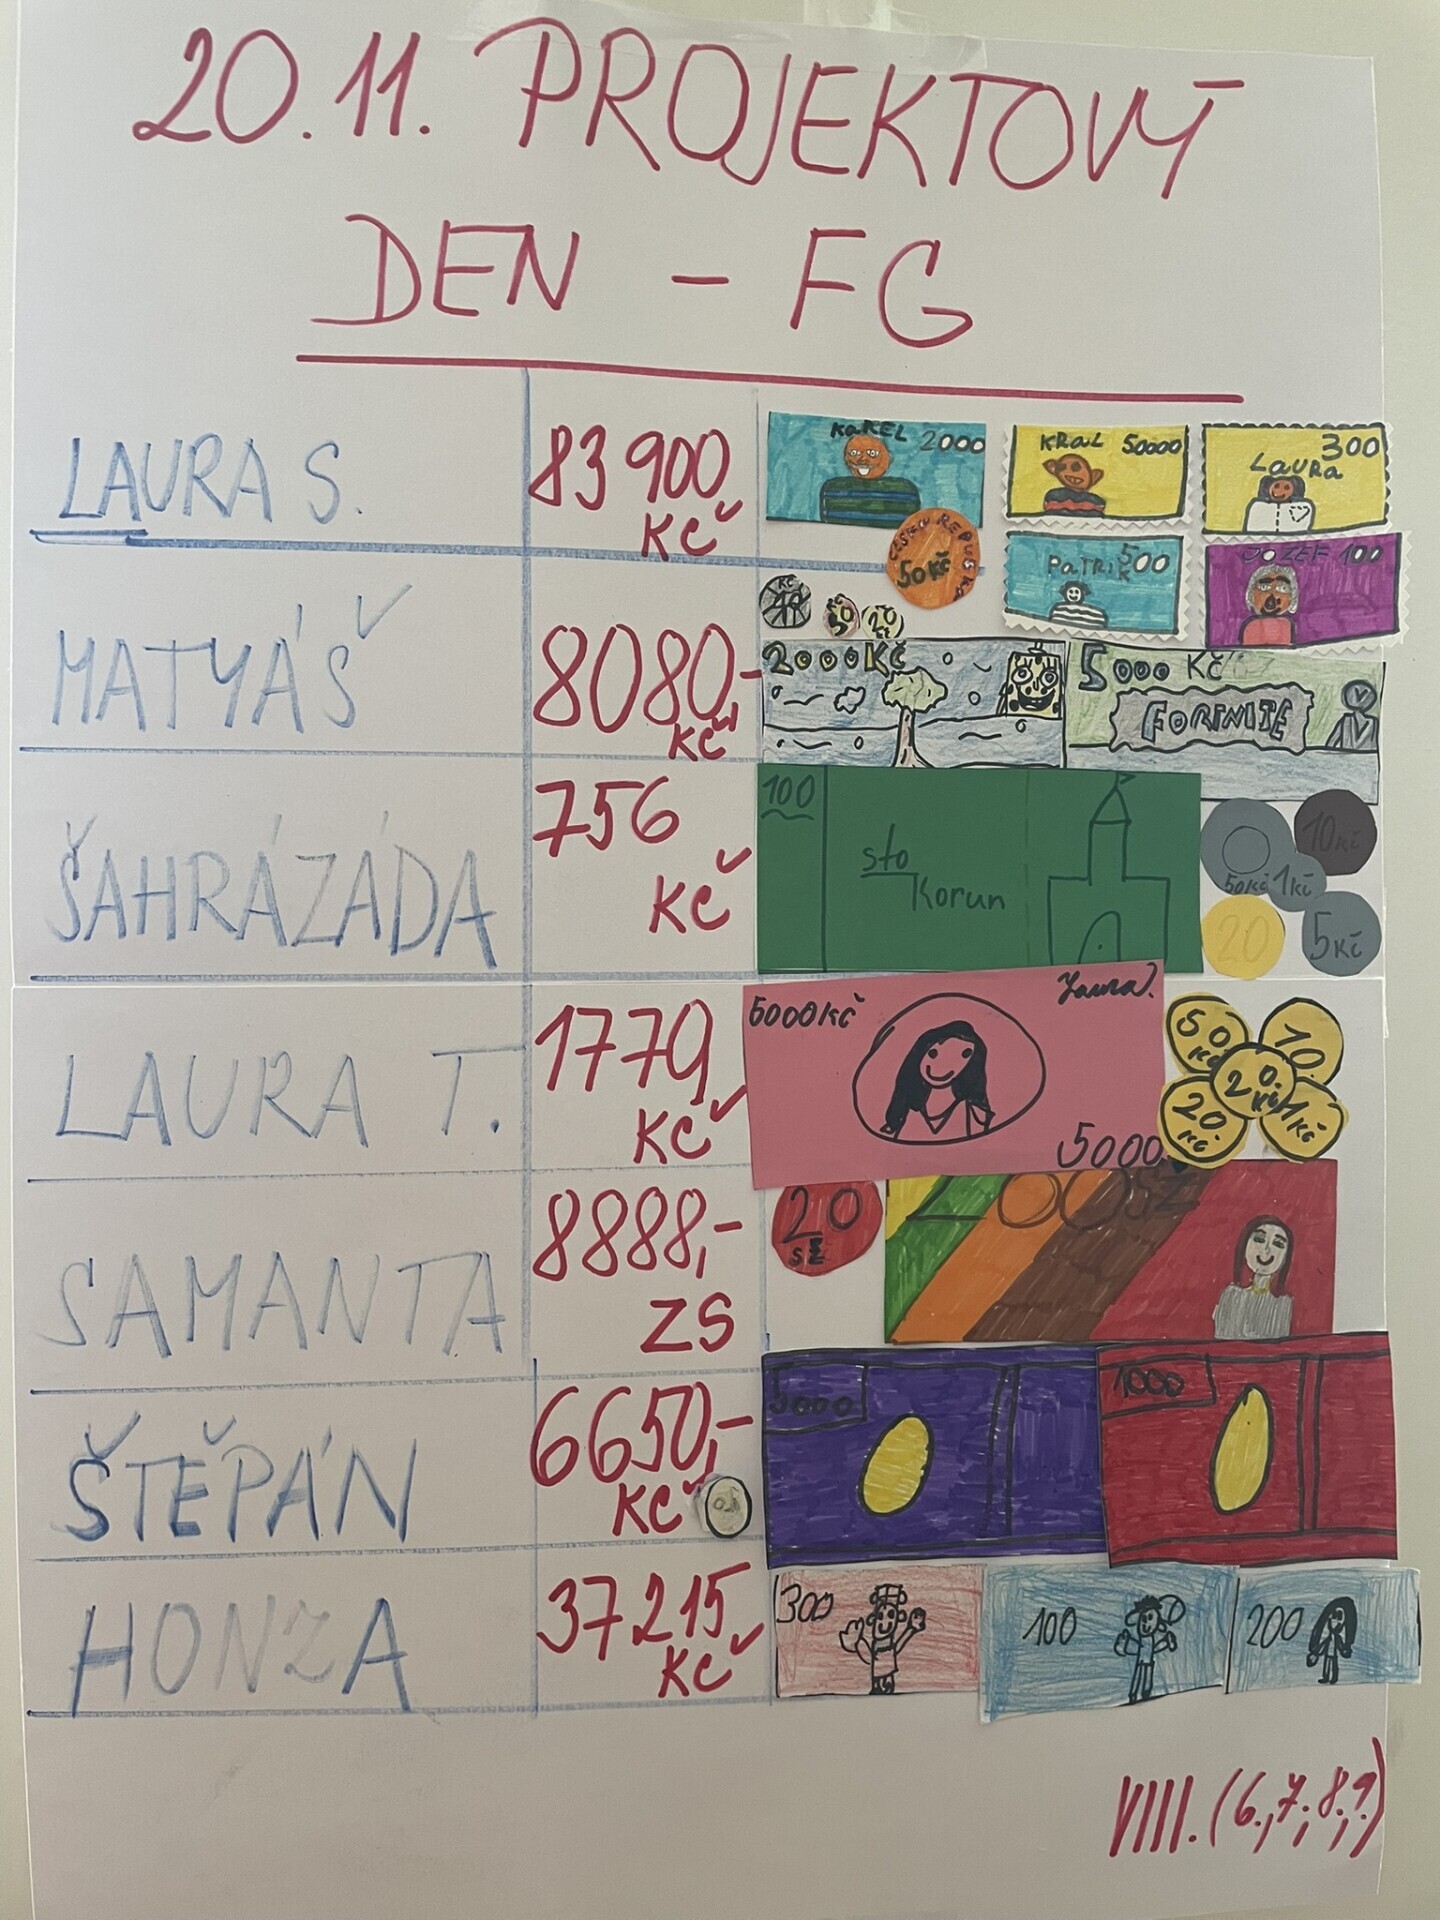 20.11. PROJEKTOVÝ
DEN - FG
LAURA S.
83 900
Kč
KaREL 2000
KRaL 50000
300
LauRa
ČESKÁ REPUBLIKA
50Kč
PaTRiK 500
JOZEF 100
MATYÁŠ
8080,-
Kč
Kč
10
50
20
Kč
2000Kč
5000 Kč
FORTNITE
ŠAHRÁZÁDA
756
Kč
100
sto
Korun
50Kč
10Kč
1Kč
20
5Kč
LAURA T.
1779
Kč
5000Kč
5000
50
Kč
10
20
Kč
20
Kč
1Kč
SAMANTA
8888,-
ZS
20
ŠTĚPÁN
6650,-
Kč
5000
1000
HONZA
37 215
Kč
300
100
200
VIII. (6., 7., 8., 9.)